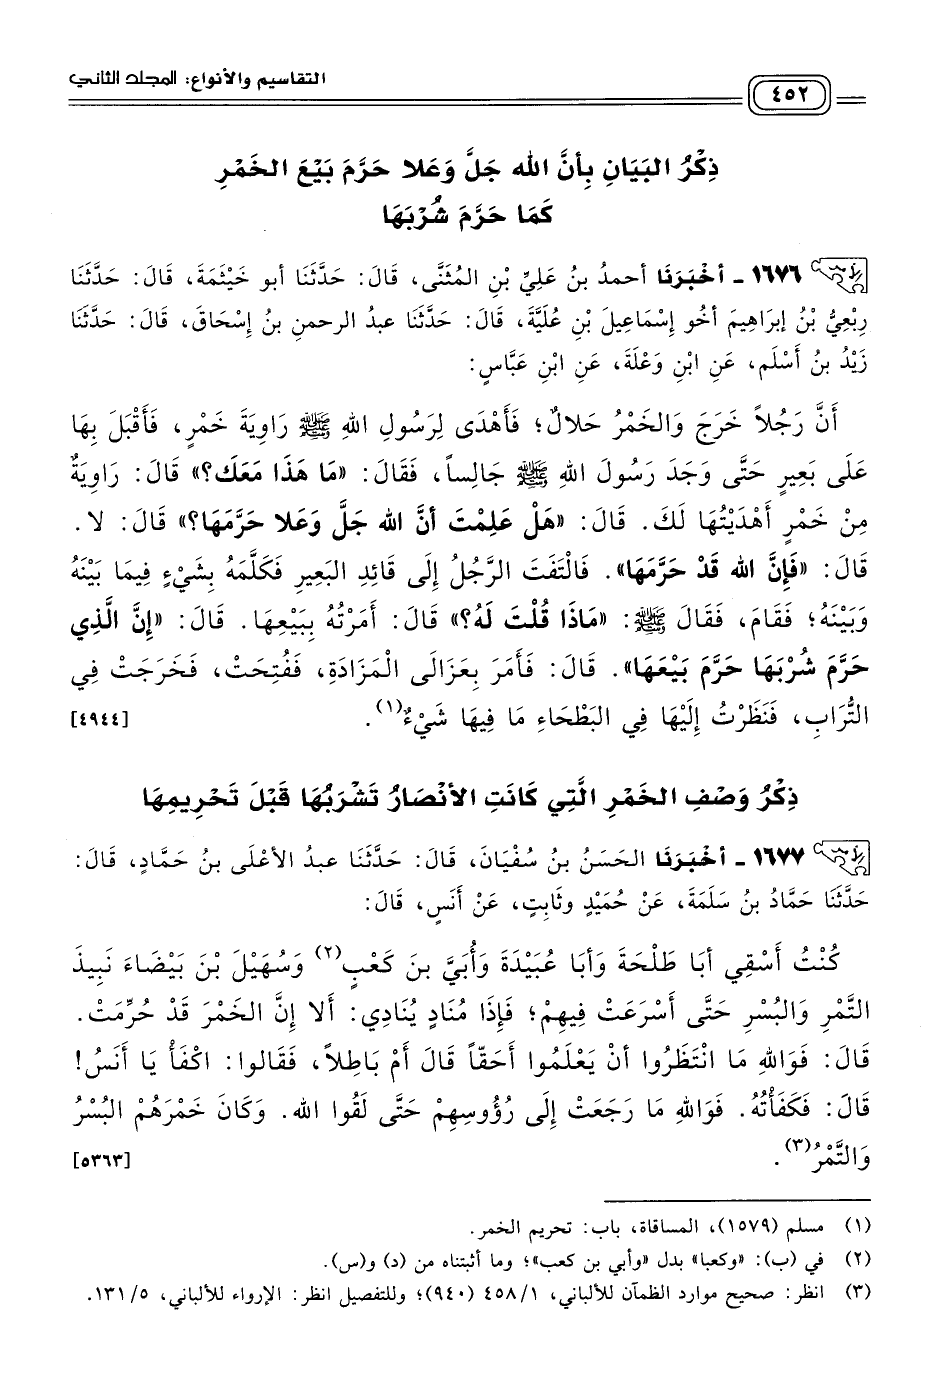 التقاسيم والأنواع: المجلد الثاني
٤٥٢
ذِكْرُ البَيَانِ بِأنَّ الله جَلَّ وَعَلا حَرَّمَ بَيْعَ الخَمْرِ
كَمَا حَرَّمَ شُرْبَهَا
١٦٧٦ - أخْبَرَنَا أحمدُ بنُ عَلِيِّ بْنِ المُثَنَّى، قَالَ: حَدَّثَنَا أبو خَيْثَمَةَ، قَالَ: حَدَّثَنَا
رِبْعِيُّ بْنُ إبرَاهِيمَ أخُو إسْمَاعِيلَ بْنِ عُلَيَّةَ، قَالَ: حَدَّثَنَا عبدُ الرحمنِ بنُ إسْحَاقَ، قَالَ: حَدَّثَنَا
زَيْدُ بنُ أَسْلَم، عَنِ ابْنِ وَعْلَةَ، عَنِ ابْنِ عَبَّاسٍ:
أَنَّ رَجُلاً خَرَجَ وَالخَمْرُ حَلالٌ؛ فَأَهْدَى لِرَسُولِ اللهِ ﷺ رَاوِيَةَ خَمْرٍ، فَأَقْبَلَ بِهَا
عَلَى بَعِيرٍ حَتَّى وَجَدَ رَسُولَ اللهِ ﷺ جَالِساً، فَقَالَ: «مَا هَذَا مَعَكَ؟» قَالَ: رَاوِيَةٌ
مِنْ خَمْرٍ أَهْدَيْتُهَا لَكَ. قَالَ: «هَلْ عَلِمْتَ أنَّ الله جَلَّ وَعَلا حَرَّمَهَا؟» قَالَ: لا.
قَالَ: «فَإنَّ الله قَدْ حَرَّمَهَا». فَالْتَفَتَ الرَّجُلُ إلَى قَائِدِ البَعِيرِ فَكَلَّمَهُ بِشَيْءٍ فِيمَا بَيْنَهُ
وَبَيْنَهُ؛ فَقَامَ، فَقَالَ ﷺ: «مَاذَا قُلْتَ لَهُ؟» قَالَ: أَمَرْتُهُ بِبَيْعِهَا. قَالَ: «إنَّ الَّذِي
حَرَّمَ شُرْبَهَا حَرَّمَ بَيْعَهَا». قَالَ: فَأَمَرَ بِعَزَالَى الْمَزَادَةِ، فَفُتِحَتْ، فَخَرَجَتْ فِي
التُّرَابِ، فَنَظَرْتُ إلَيْهَا فِي البَطْحَاءِ مَا فِيهَا شَيْءٌ(١). [٤٩٤٤]
ذِكْرُ وَصْفِ الخَمْرِ الَّتِي كَانَتِ الأنْصَارُ تَشْرَبُهَا قَبْلَ تَحْرِيمِهَا
١٦٧٧ - أخْبَرَنَا الحَسَنُ بنُ سُفْيَانَ، قَالَ: حَدَّثَنَا عبدُ الأعْلَى بنُ حَمَّادٍ، قَالَ:
حَدَّثَنَا حَمَّادُ بنُ سَلَمَةَ، عَنْ حُمَيْدٍ وثَابِتٍ، عَنْ أنَسٍ، قَالَ:
كُنْتُ أَسْقِي أبَا طَلْحَةَ وَأبَا عُبَيْدَةَ وَأُبَيَّ بنَ كَعْبٍ(٢) وَسُهَيْلَ بْنَ بَيْضَاءَ نَبِيذَ
التَّمْرِ وَالبُسْرِ حَتَّى أَسْرَعَتْ فِيهِمْ؛ فَإذَا مُنَادٍ يُنَادِي: ألا إنَّ الخَمْرَ قَدْ حُرِّمَتْ.
قَالَ: فَوَاللهِ مَا انْتَظَرُوا أنْ يَعْلَمُوا أَحَقّاً قَالَ أمْ بَاطِلاً، فَقَالوا: اكْفَأْ يَا أنَسُ!
قَالَ: فَكَفَأْتُهُ. فَوَاللهِ مَا رَجَعَتْ إلَى رُؤُوسِهِمْ حَتَّى لَقُوا الله. وَكَانَ خَمْرَهُمْ البُسْرُ
وَالتَّمْرُ(٣). [٥٣٦٣]
(١) مسلم (١٥٧٩)، المساقاة، باب: تحريم الخمر.
(٢) في (ب): «وكعبا» بدل «وأبي بن كعب»؛ وما أثبتناه من (د) و(س).
(٣) انظر: صحيح موارد الظمآن للألباني، ٤٥٨/١ (٩٤٠)؛ وللتفصيل انظر: الإرواء للألباني، ١٣١/٥.